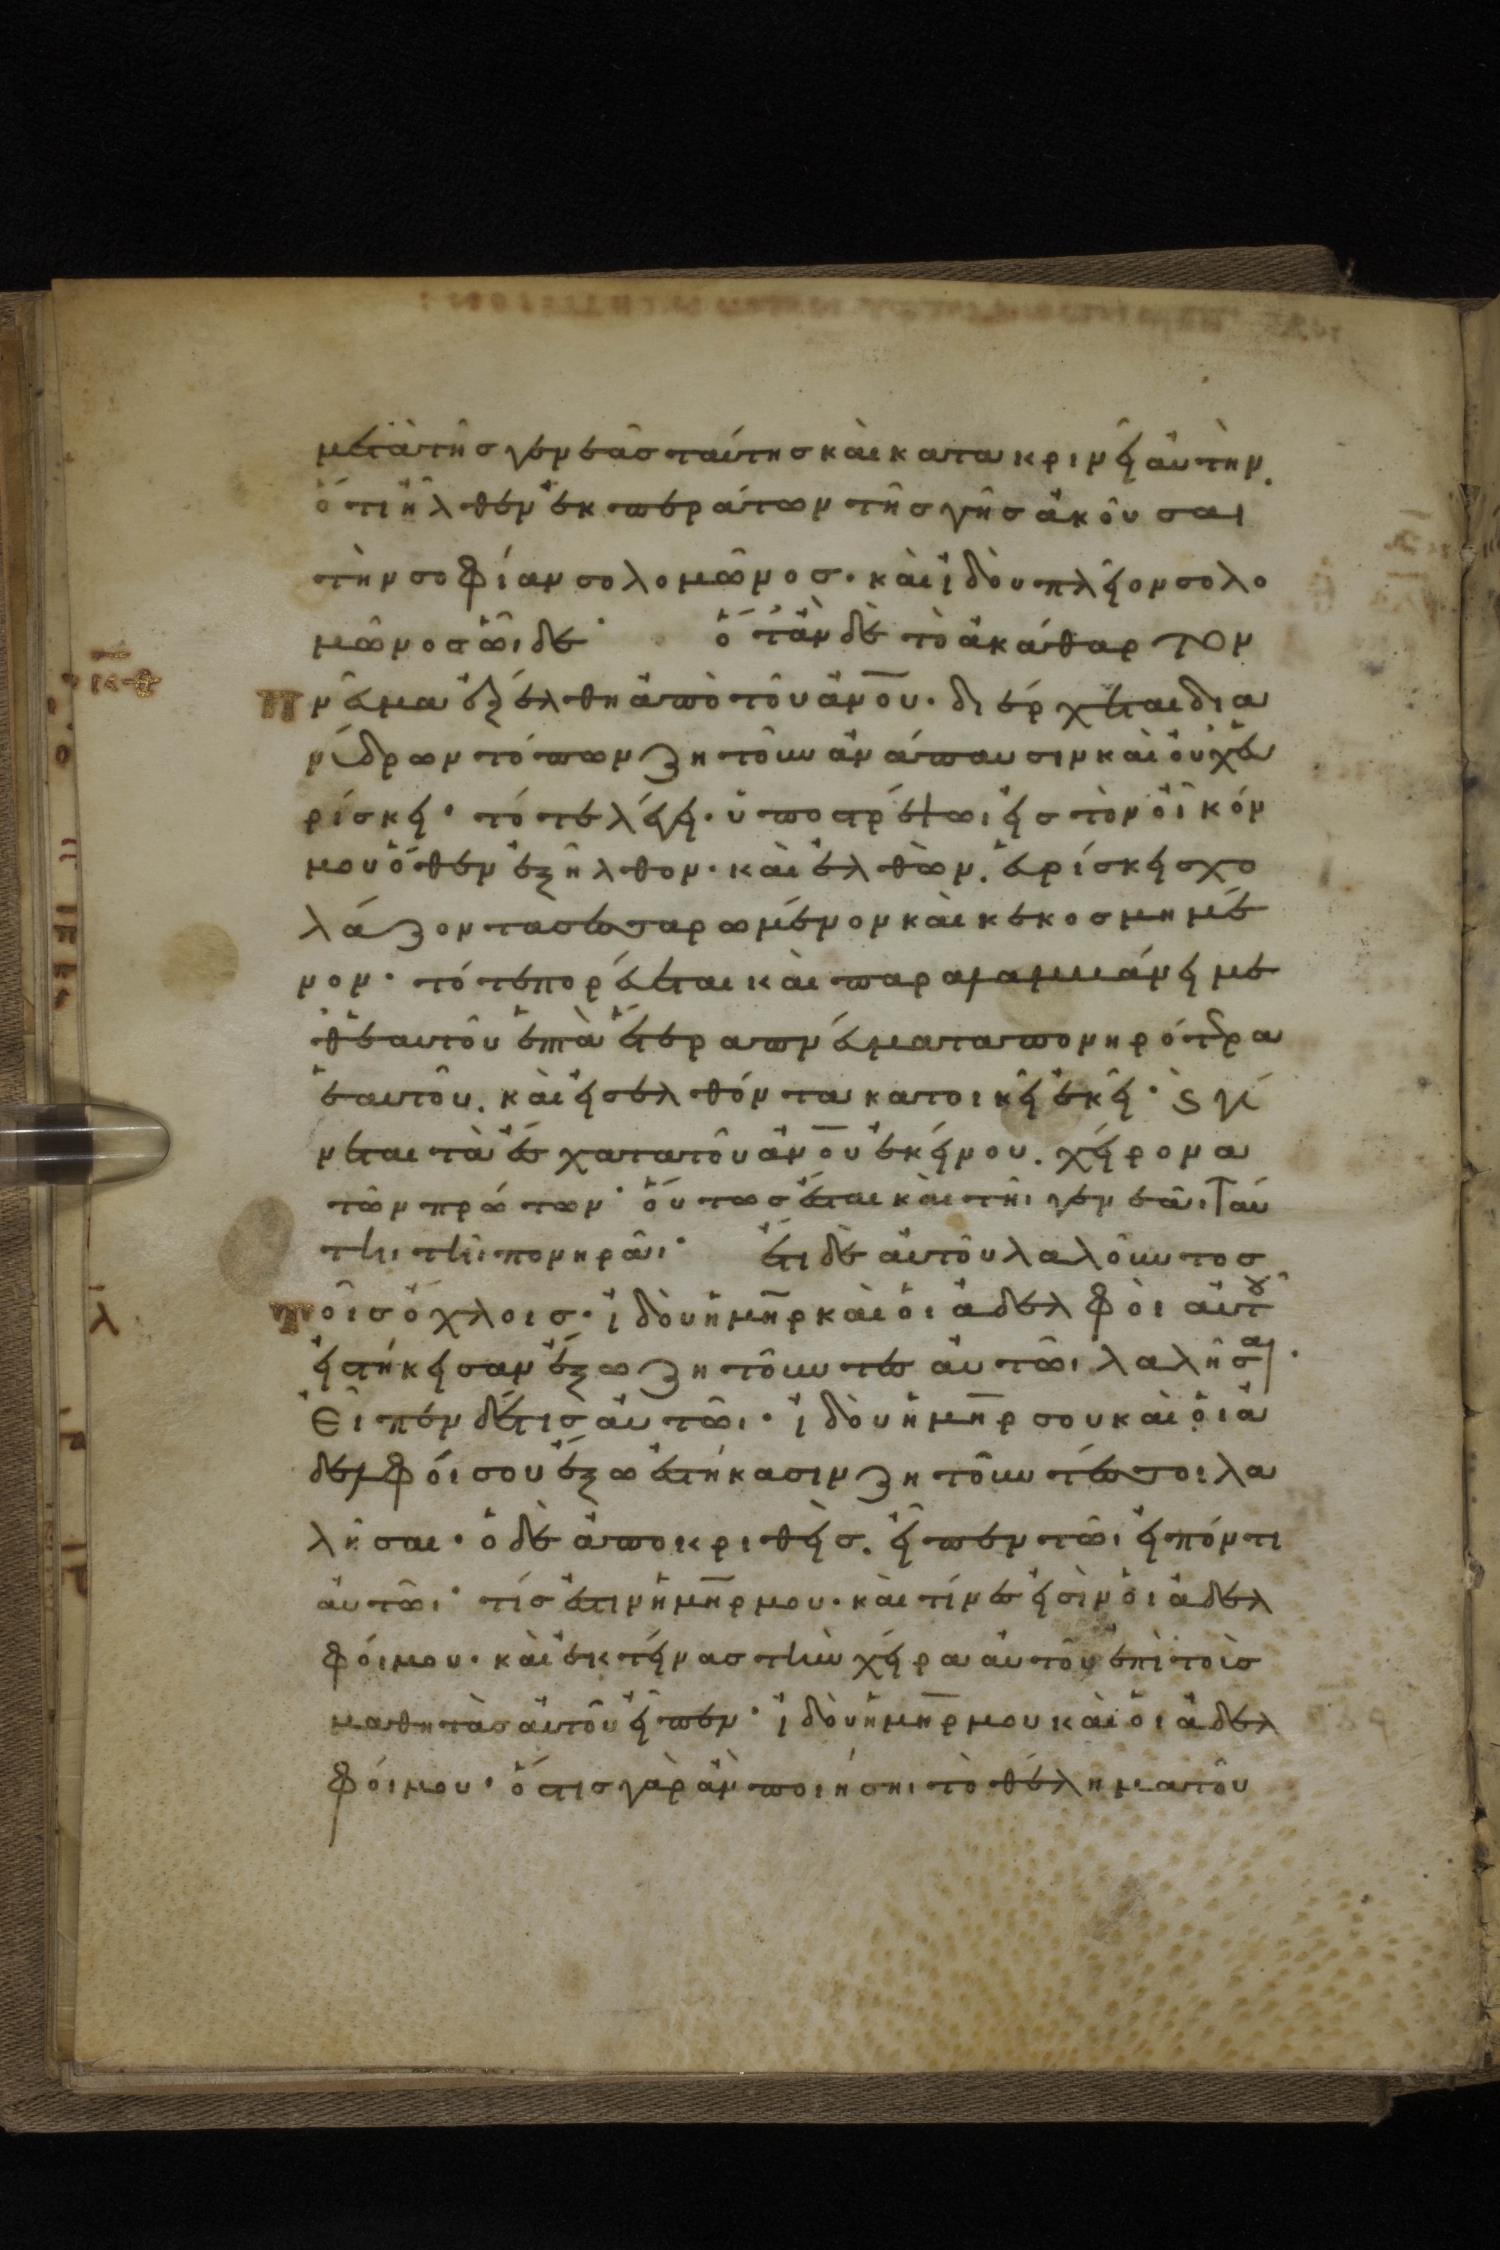 μετὰ τῆς γενεᾶς ταύτης καὶ κατακρινεῖ αὐτήν.
ὅτι ἦλθεν ἐκ περάτων τῆς γῆς ἀκοῦσαι
τὴν σοφίαν σολομῶνος· καὶ ἰδοὺ πλεῖον σολο
μῶνος ὧδε· ὅταν δὲ τὸ ἀκάθαρτον
κθ πνεῦμα ἐξέλθη ἀπὸ τοῦ ἀν̅ου· διέρχεται δια
νύδρων τόπων ζητοῦν ἀνάπαυσιν καὶ οὐχ εὑ
ρίσκει· τότε λέγει· ὑποστρέψω εἰς τὸν οἶκόν
μου ὅθεν ἐξῆλθον· καὶ ἐλθὼν. εὑρίσκει σχο
λάζοντα σεσαρωμένον καὶ κεκοσμημέ
νον· τότε πορεύεται καὶ παραλαμβάνει με
θ' ἑαυτοῦ ἑπτὰ ἕτερα πνεύματα πονηρότερα
ἑαυτοῦ. καὶ εἰσελθόντα κατοικεῖ ἐκεῖ· ϗ γί
νεται τὰ ἔσχατα τοῦ ἀν̅ου ἐκείνου. χείρονα
τῶν πρώτων· οὕτως ἔσται καὶ τῆι γενεᾶι ταύ
τηι τῆι πονηρᾶι· ἔτι δὲ αὐτοῦ λαλοῦντος
λ τοῖς ὄχλοις· ἰδοὺ ἡ μη̅ρ καὶ οἱ ἀδελφοὶ αὐτοῦ
εἱστήκεισαν ἔξω ζητοῦντες αὐτῶι λαλῆσαι·
Εἶπεν δέ τις αὐτῶι· ἰδοὺ ἡ μη̅ρ σου καὶ οἱ ἀ
δελφοί σου ἔξω ἑστήκασιν ζητοῦντές σοι λα
λῆσαι· ὁ δὲ ἀποκριθεὶς. εἶπεν τῶι εἰπόντι
αὐτῶι· τίς ἐστιν ἡ μη̅ρ μου· καὶ τίνες εἰσὶν οἱ ἀδελ
φοί μου· καὶ ἐκτείνας τὴν χεῖρα αὐτοῦ ἐπὶ τοὺς
μαθητὰς αὐτοῦ εἶπεν· ἰδοὺ ἡ μη̅ρ μου καὶ οἱ ἀδελ
φοί μου· ὅστις γὰρ ἂν ποιήσηι τὸ θέλημα τοῦ